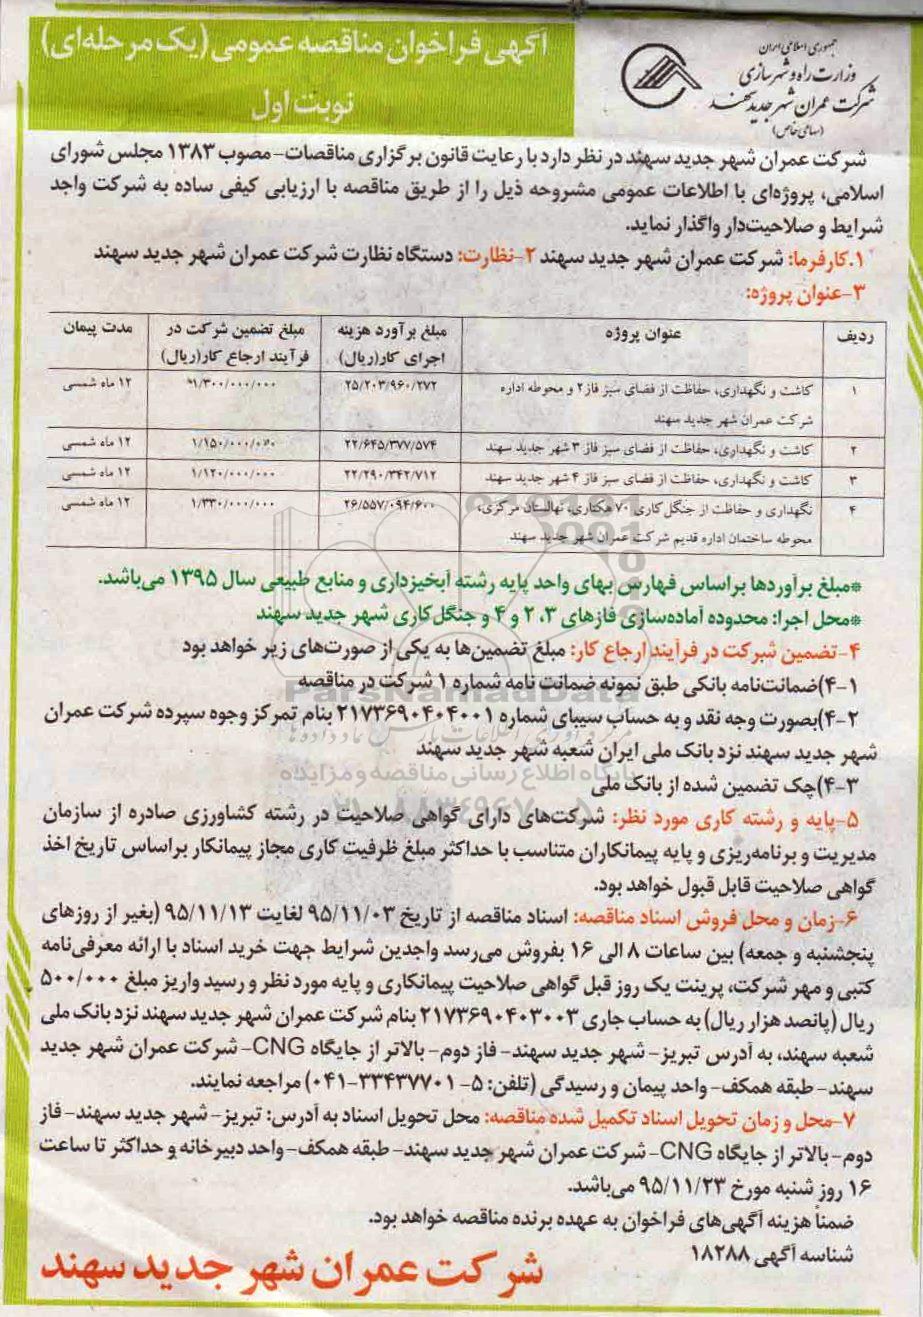 جمهوری اسلامی ایران
وزارت راه و شهرسازی
شرکت عمران شهر جدید سهند
(سهامی خاص)
آگهی فراخوان مناقصه عمومی (یک مرحله‌ای)
نوبت اول
شرکت عمران شهر جدید سهند در نظر دارد با رعایت قانون برگزاری مناقصات- مصوب ۱۳۸۳ مجلس شورای
اسلامی، پروژه‌ای با اطلاعات عمومی مشروحه ذیل را از طریق مناقصه با ارزیابی کیفی ساده به شرکت واجد
شرایط و صلاحیت‌دار واگذار نماید.
۱.کارفرما: شرکت عمران شهر جدید سهند ۲-نظارت: دستگاه نظارت شرکت عمران شهر جدید سهند
۳-عنوان پروژه:
ردیف عنوان پروژه مبلغ برآورد هزینه اجرای کار(ریال) مبلغ تضمین شرکت در فرآیند ارجاع کار(ریال) مدت پیمان
۱ کاشت و نگهداری، حفاظت از فضای سبز فاز۲ و محوطه اداره ۲۵/۲۰۳/۹۶۰/۲۷۲ ۱/۳۰۰/۰۰۰/۰۰۰ ۱۲ ماه شمسی
شرکت عمران شهر جدید سهند
۲ کاشت و نگهداری، حفاظت از فضای سبز فاز ۳ شهر جدید سهند ۲۲/۶۴۵/۳۷۷/۵۷۴ ۱/۱۵۰/۰۰۰/۰۰۰ ۱۲ ماه شمسی
۳ کاشت و نگهداری، حفاظت از فضای سبز فاز ۴ شهر جدید سهند ۲۲/۲۹۰/۳۴۲/۷۱۲ ۱/۱۲۰/۰۰۰/۰۰۰ ۱۲ ماه شمسی
۴ نگهداری و حفاظت از جنگل کاری ۷۰ هکتاری، نهالستان مرکزی، ۲۶/۵۵۷/۰۹۴/۶۰۰ ۱/۳۳۰/۰۰۰/۰۰۰ ۱۲ ماه شمسی
محوطه ساختمان اداره قدیم شرکت عمران شهر جدید سهند
*مبلغ برآوردها براساس فهارس بهای واحد پایه رشته آبخیزداری و منابع طبیعی سال ۱۳۹۵ می‌باشد.
*محل اجرا: محدوده آماده‌سازی فازهای ۲،۳ و ۴ و جنگل‌کاری شهر جدید سهند
۴-تضمین شرکت در فرآیند ارجاع کار: مبلغ تضمین‌ها به یکی از صورت‌های زیر خواهد بود
۴-۱)ضمانت‌نامه بانکی طبق نمونه ضمانت نامه شماره ۱ شرکت در مناقصه
۴-۲)بصورت وجه نقد و به حساب سیبای شماره ۲۱۷۳۶۹۰۴۰۴۰۰۱ بنام تمرکز وجوه سپرده شرکت عمران
شهر جدید سهند نزد بانک ملی ایران شعبه شهر جدید سهند
۴-۳)چک تضمین شده از بانک ملی
۵-پایه و رشته کاری مورد نظر: شرکت‌های دارای گواهی صلاحیت در رشته کشاورزی صادره از سازمان
مدیریت و برنامه‌ریزی و پایه پیمانکاران متناسب با حداکثر مبلغ ظرفیت کاری مجاز پیمانکار براساس تاریخ اخذ
گواهی صلاحیت قابل قبول خواهد بود.
۶-زمان و محل فروش اسناد مناقصه: اسناد مناقصه از تاریخ ۹۵/۱۱/۰۳ لغایت ۹۵/۱۱/۱۳ (بغیر از روزهای
پنجشنبه و جمعه) بین ساعات ۸ الی ۱۶ بفروش می‌رسد واجدین شرایط جهت خرید اسناد با ارائه معرفی‌نامه
کتبی و مهر شرکت، پرینت یک روز قبل گواهی صلاحیت پیمانکاری و پایه مورد نظر و رسید واریز مبلغ ۵۰۰/۰۰۰
ریال (پانصد هزار ریال) به حساب جاری ۲۱۷۳۶۹۰۴۰۳۰۰۳ بنام شرکت عمران شهر جدید سهند نزد بانک ملی
شعبه سهند، به آدرس تبریز- شهر جدید سهند- فاز دوم- بالاتر از جایگاه CNG- شرکت عمران شهر جدید
سهند- طبقه همکف- واحد پیمان و رسیدگی (تلفن: ۵- ۳۳۴۳۷۷۰۱-۰۴۱) مراجعه نمایند.
۷-محل و زمان تحویل اسناد تکمیل شده مناقصه: محل تحویل اسناد به آدرس: تبریز- شهر جدید سهند- فاز
دوم- بالاتر از جایگاه CNG- شرکت عمران شهر جدید سهند- طبقه همکف- واحد دبیرخانه و حداکثر تا ساعت
۱۶ روز شنبه مورخ ۹۵/۱۱/۲۳ می‌باشد.
ضمناً هزینه آگهی‌های فراخوان به عهده برنده مناقصه خواهد بود.
شناسه آگهی ۱۸۲۸۸
شرکت عمران شهر جدید سهند
ParsNamadData
پایگاه اطلاع رسانی مناقصه و مزایده